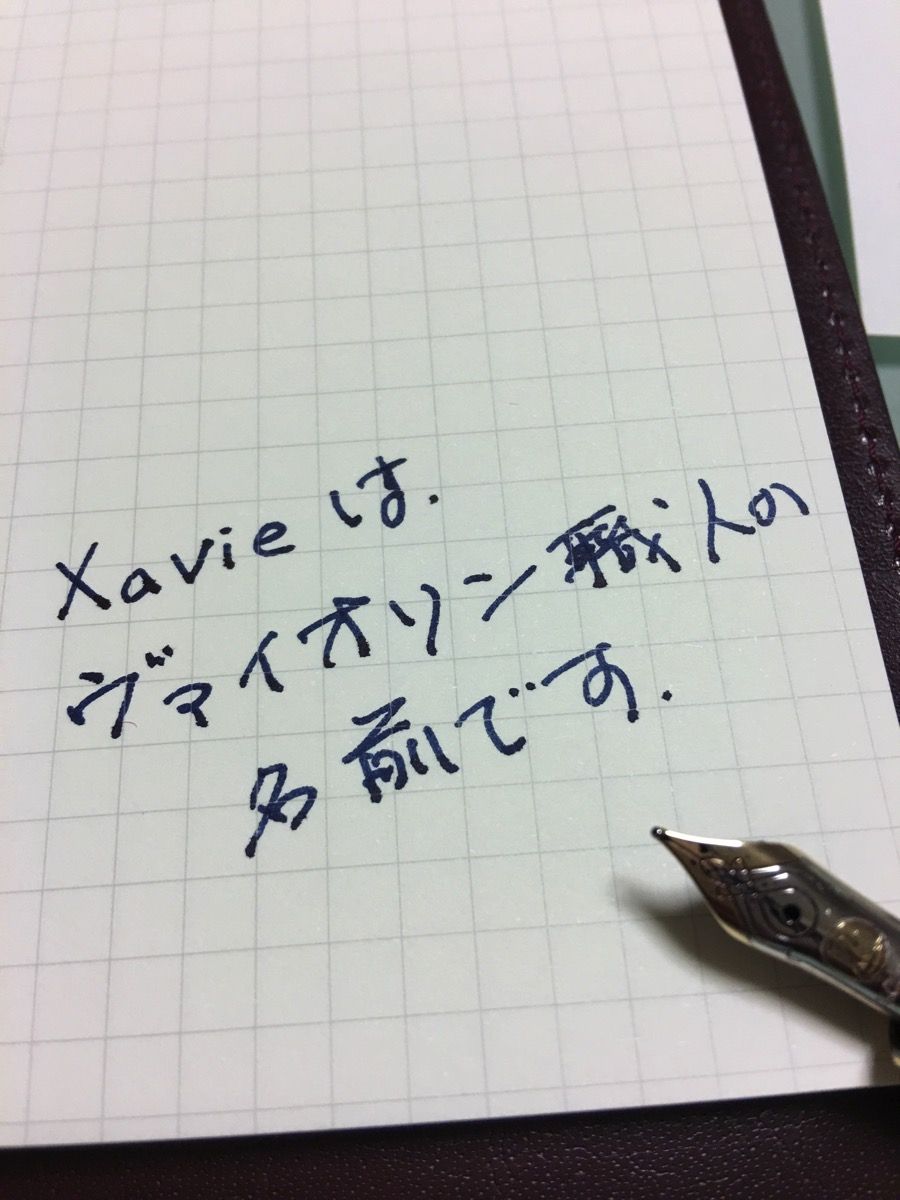 Xavieは.
ヴァイオリン職人の
名前です.